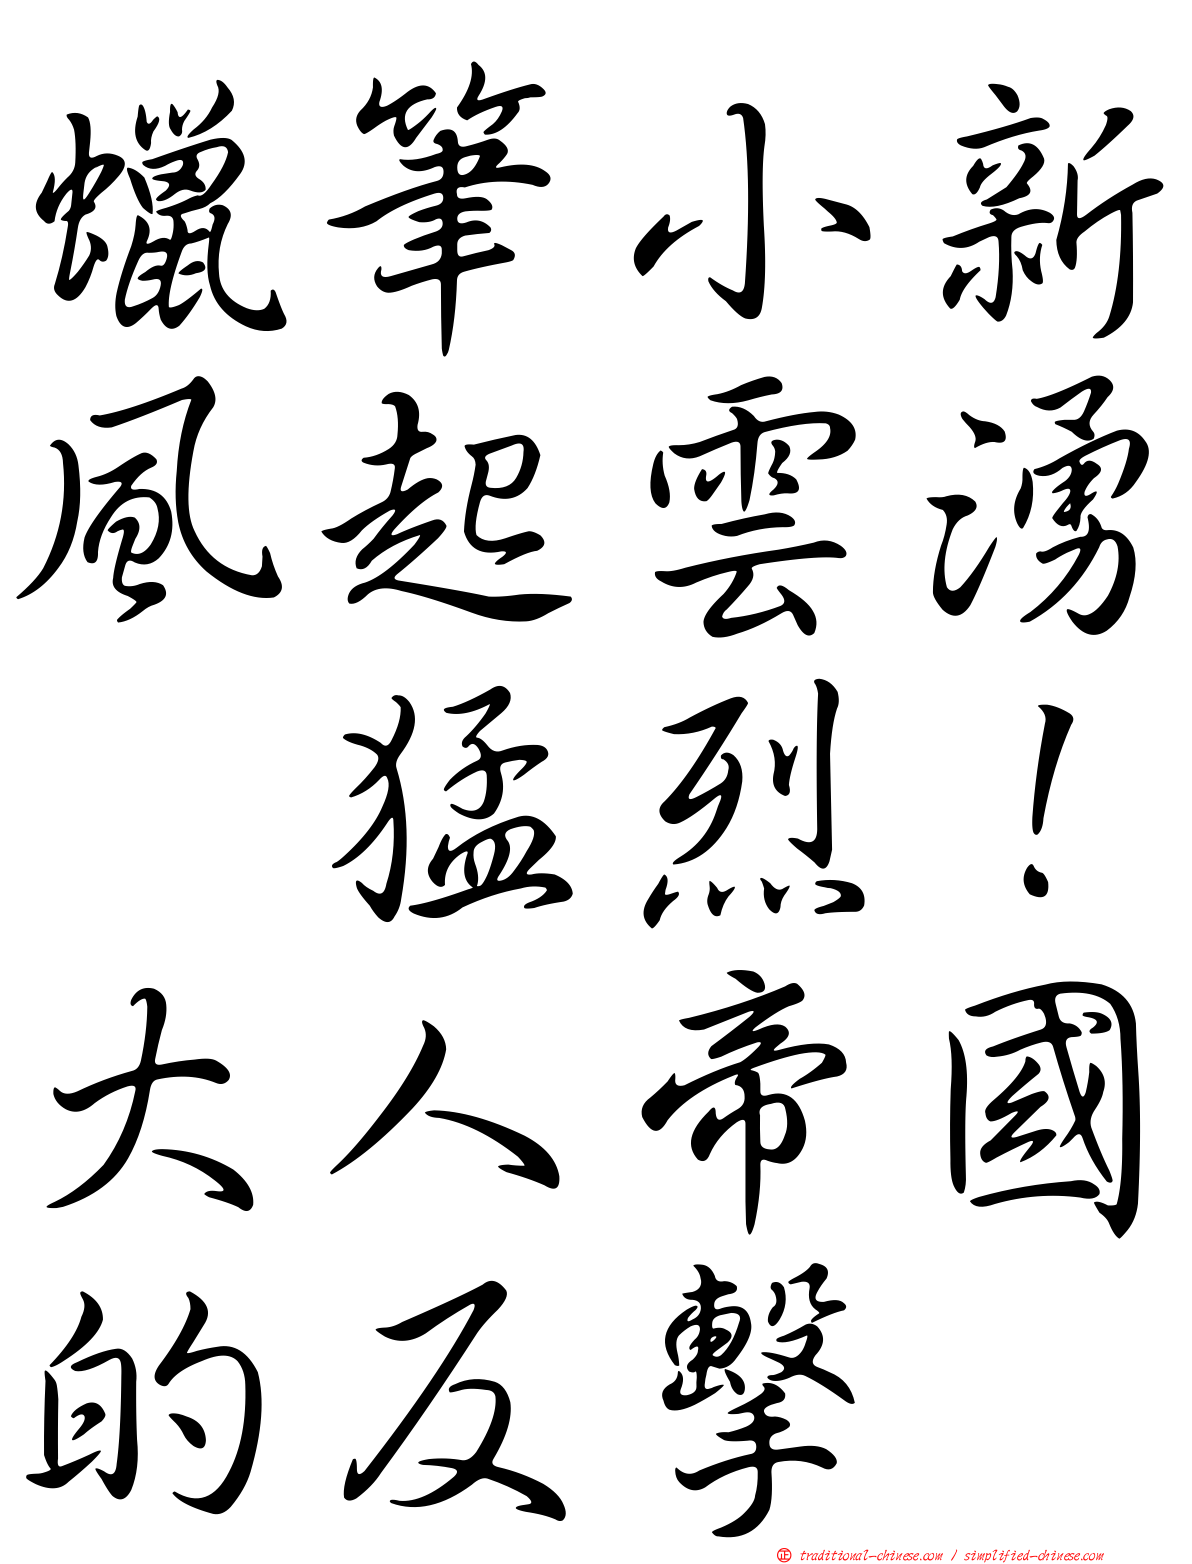 蠟筆小新
風起雲湧
猛烈！
大人帝國
的反擊
正 traditional-chinese.com / simplified-chinese.com